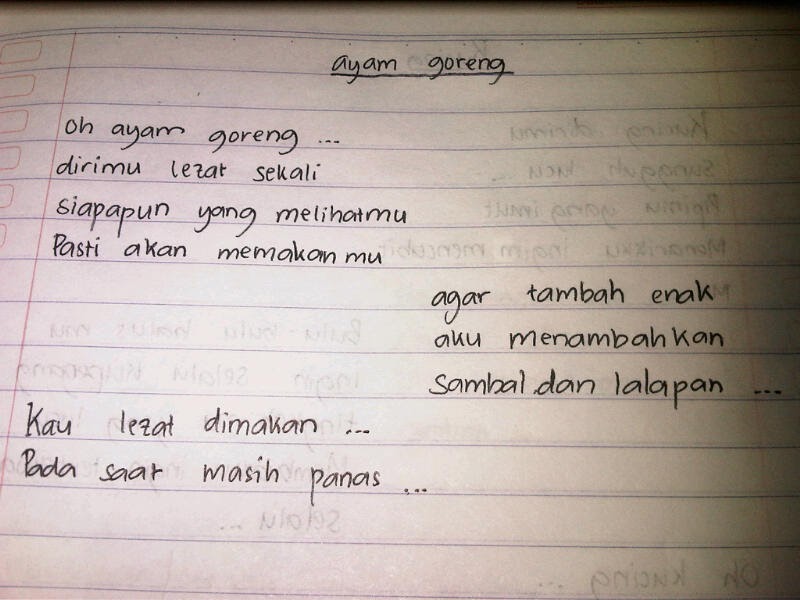 ayam goreng
oh ayam goreng ...
dirimu lezat sekali
siapapun yang melihatmu
Pasti akan memakanmu
agar tambah enak
aku menambahkan
sambal dan lalapan ...
Kau lezat dimakan ...
Pada saat masih panas ...